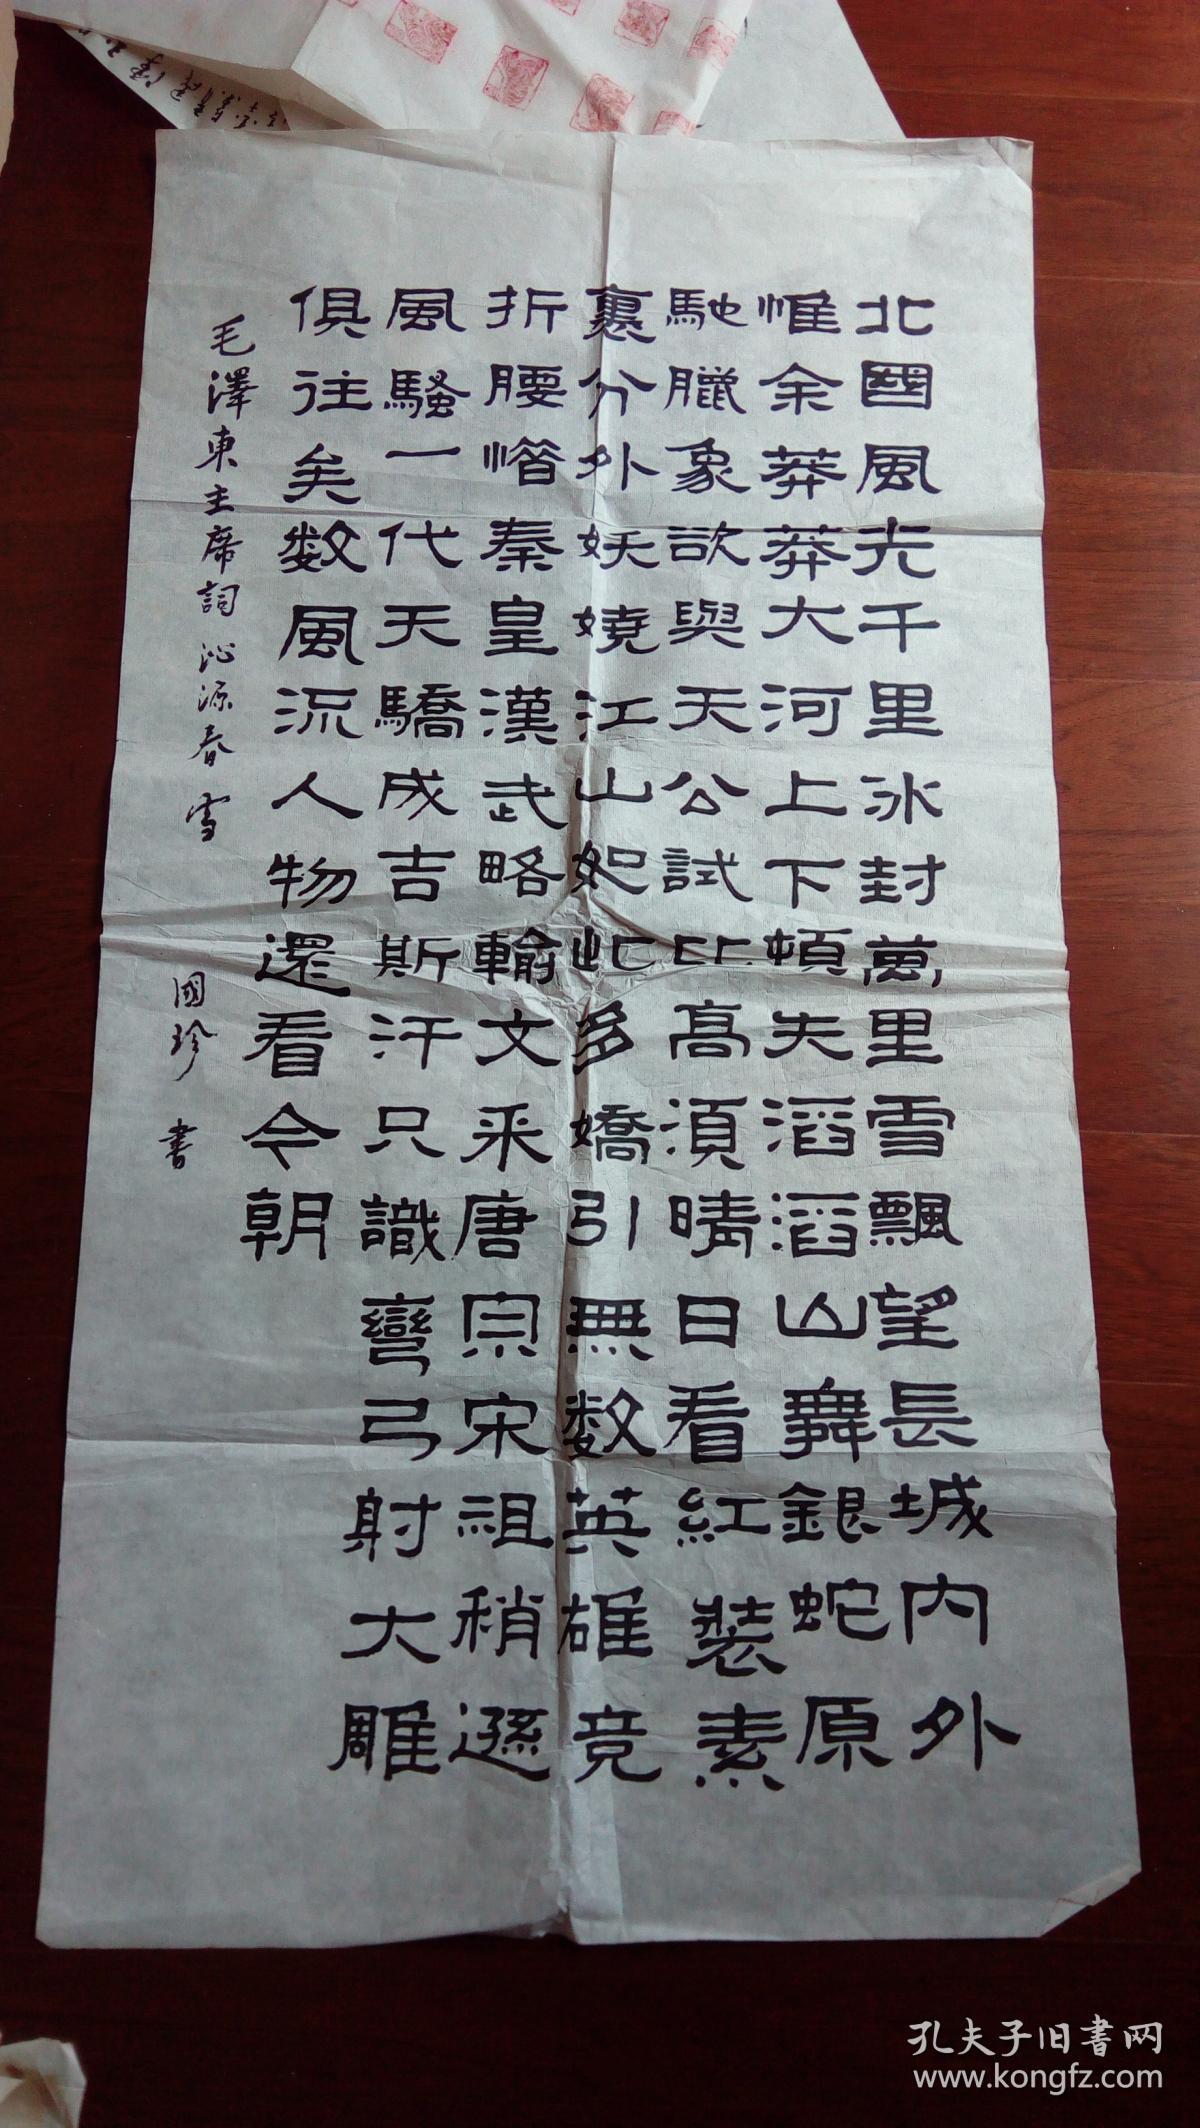 北國風光千里冰封萬里雪飄望長城内外
惟余莽莽大河上下頓失滔滔山舞銀蛇原
馳臘象欲與天公試比高須晴日看紅裝素
裹分外妖嬈江山如此多嬌引無数英雄竞
折腰惜秦皇漢武略輸文采唐宗宋祖稍遜
風騷一代天驕成吉斯汗只識彎弓射大雕
俱往矣数風流人物還看今朝
毛澤東主席詞沁源春雪 國珍書
孔夫子旧書网
www.kongfz.com